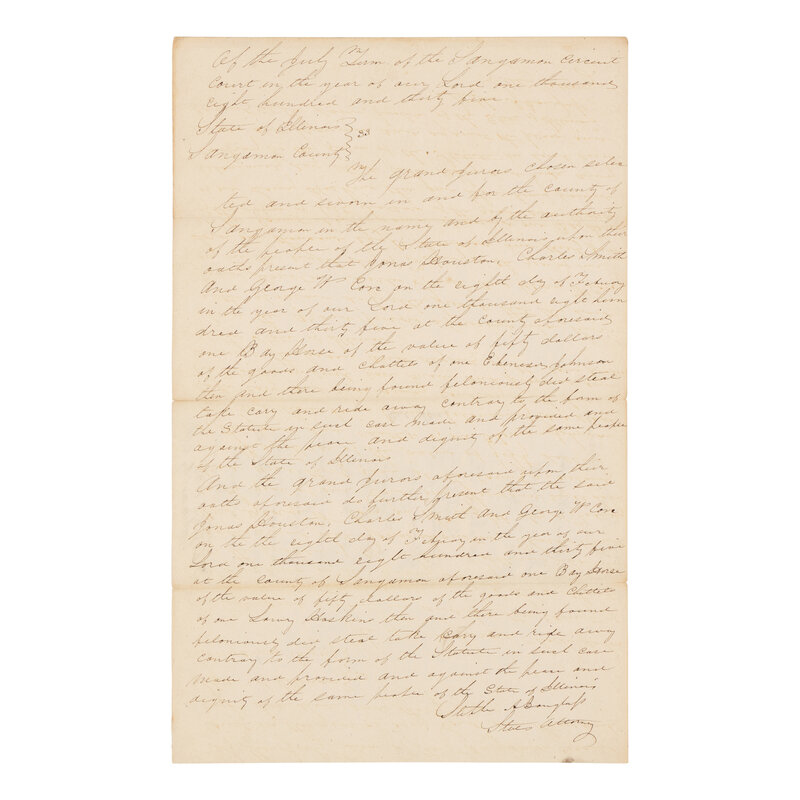 Of the July Term of the Sangamon Circuit
Court in the year of our Lord one thousand
eight hundred and thirty five
State of Illinois
Sangamon County
The grand Jurors chosen selec
ted and sworn in and for the County of
Sangamon in the name and by the authority
of the people of the State of Illinois upon their
oaths present that Jonas Houston, Charles Smith
And George W Core on the eighth day of
in the year of our Lord one thousand eight hun
dred and thirty five at the County aforesaid
one Bay Horse of the value of fifty dollars
of the goods and chattels of one Ebenezer Johnson
then and there being found feloniously did steal
take cary and ride away contrary to the form of
the Statute in such case made and provided and
against the peace and dignity of the same people
of the State of Illinois
And the grand Jurors aforesaid upon their
oaths aforesaid do further present that the said
Jonas Houston, Charles Smith And George W Core
on the the eighth day of in the year of our
Lord one thousand eight hundred and thirty five
at the County of Sangamon aforesaid one Bay Horse
of the value of fifty dollars of the goods and
of one Haskins then and there being found
feloniously did steal take cary and ride away
contrary to the form of the Statute in such case
made and provided and against the peace and
dignity of the same people of the State of Illinois
A Douglass
States